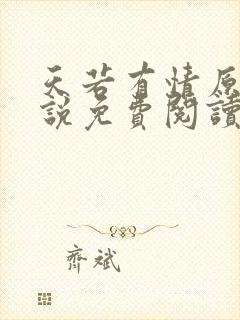 天若有情原
說免費閱讀
齊斌